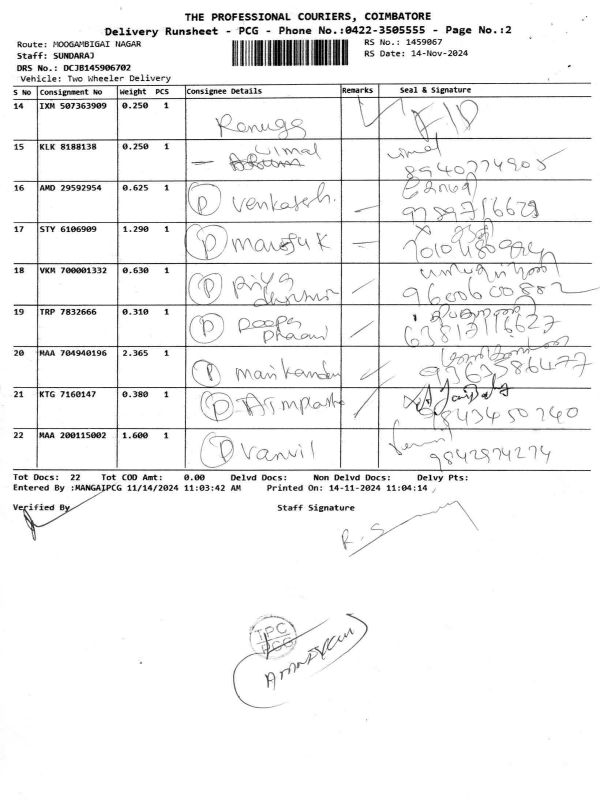 THE PROFESSIONAL COURIERS, COIMBATORE
Delivery Runsheet - PCG - Phone No.:0422-3505555 - Page No.:2
Route: MOOGAMBIGAI NAGAR RS No.: 1459067
Staff: SUNDARAJ RS Date: 14-Nov-2024
DRS No.: DCJB145906702
Vehicle: Two Wheeler Delivery
S No Consignment No Weight PCS Consignee Details Remarks Seal & Signature
14 IXM 507363909 0.250 1 Renuga
15 KLK 8188138 0.250 1 vimal vimal
8940774905
16 AMD 29592954 0.625 1 P venkatesh.
9789716629
17 STY 6106909 1.290 1 P
18 VKM 700001332 0.630 1 P priya
9600600882
19 TRP 7832666 0.310 1 P Roopa
63817116627
20 MAA 704940196 2.365 1 P manikandan
9363586477
21 KTG 7160147 0.380 1 P
9843450740
22 MAA 200115002 1.600 1 P vanvil
9842974274
Tot Docs: 22 Tot COD Amt: 0.00 Delvd Docs: Non Delvd Docs: Delvy Pts:
Entered By :MANGAIPCG 11/14/2024 11:03:42 AM Printed On: 14-11-2024 11:04:14
Verified By Staff Signature
R. S
TPC
PCG